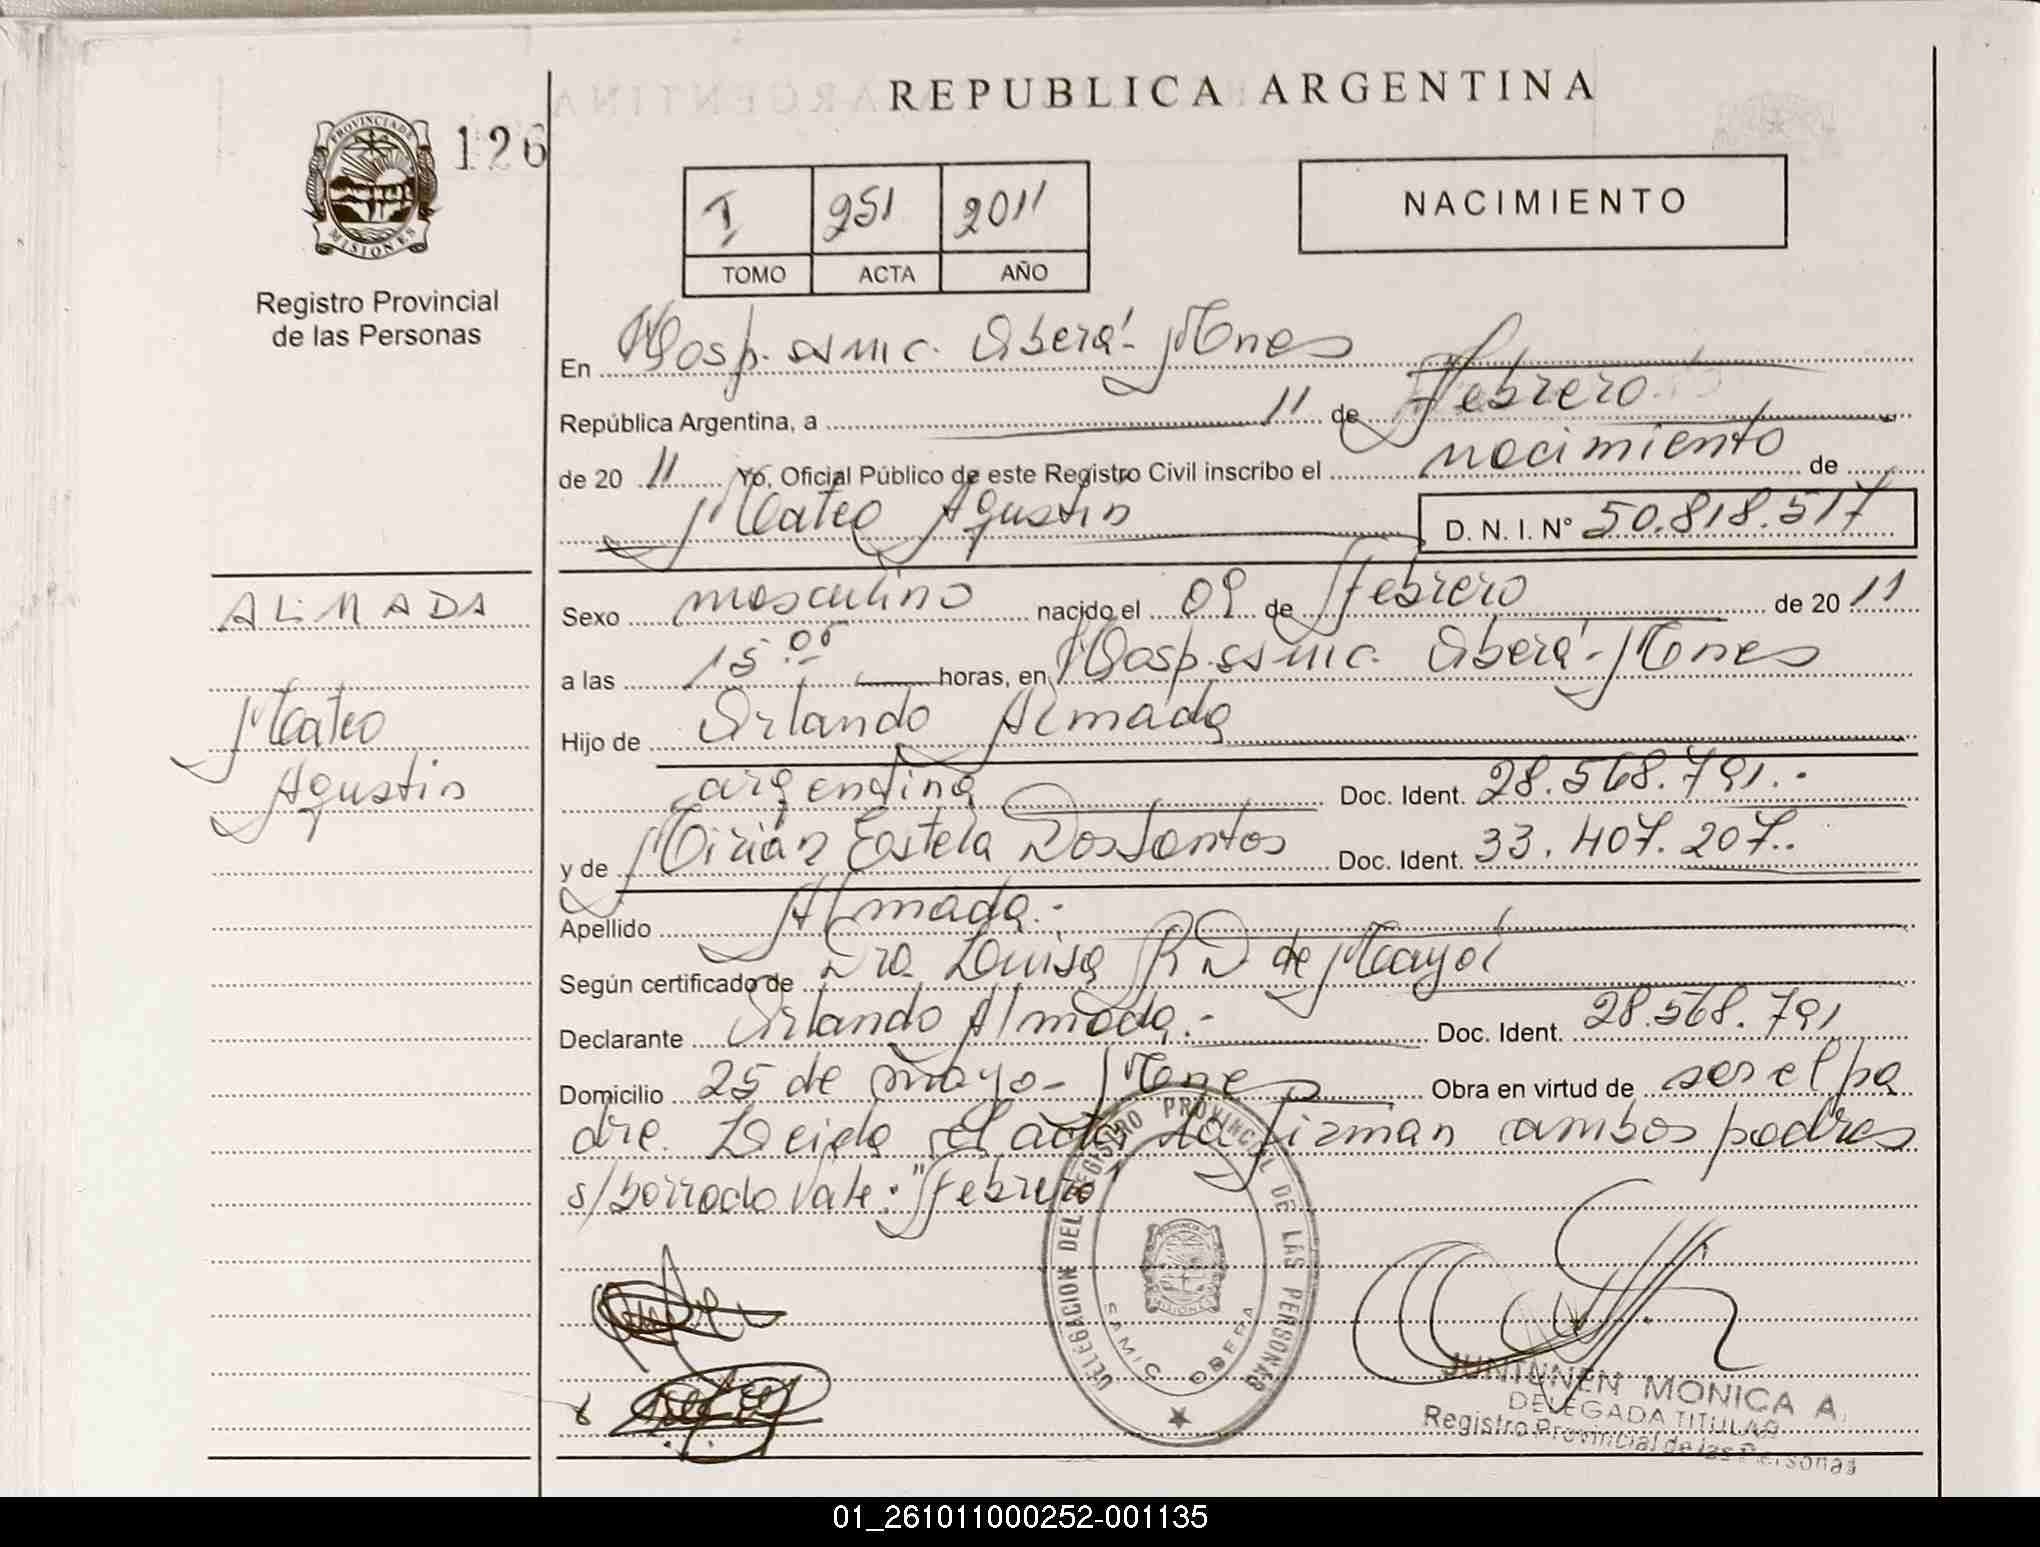 REPUBLICA ARGENTINA
PROVINCIA DE
MISIONES
126
Registro Provincial
de las Personas
I 251 2011
TOMO ACTA AÑO
NACIMIENTO
En Hosp. SAMIC. Oberá - Mnes
República Argentina, a 11 de Febrero
de 20 11 Yo, Oficial Público de este Registro Civil inscribo el nacimiento de
Mateo Agustin D. N. I. N° 50.818.517
ALMADA
Mateo
Agustin
Sexo masculino nacido el 09 de febrero de 20 11
a las 15 horas, en Hosp. SAMIC. Oberá - Mnes
Hijo de Orlando Almada
argentina Doc. Ident. 28.568.791.-
y de Mirian Estela Dos Santos Doc. Ident. 33.407.207.
Apellido Almada.-
Según certificado de Dra Luisa R D de Mayol
Declarante Orlando Almada.- Doc. Ident. 28.568.791
Domicilio 25 de mayo - Mnes Obra en virtud de ser el pa
dre. Leida el acta la firman ambos padres
s/borrado vale: "febrero"
DELEGACION DEL REGISTRO PROVINCIAL DE LAS PERSONAS
SAMIC OBERA
JUNTUNEN MONICA A.
DELEGADA TITULAR
Registro Provincial de las Personas
01_261011000252-001135